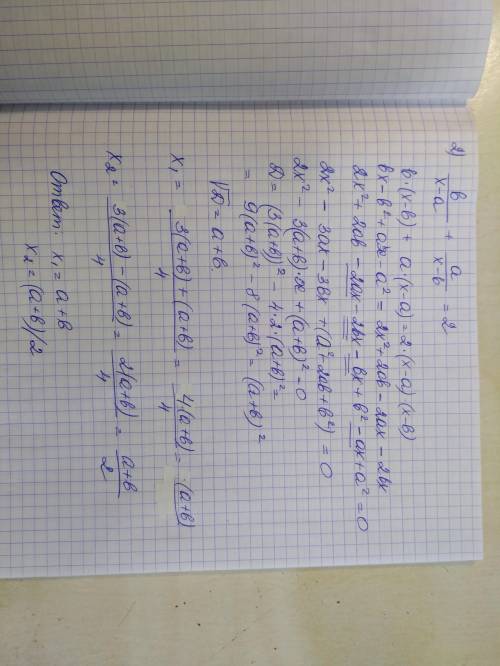 2) b/(x-a) + a/(x-b) = 2
b·(x-b) + a·(x-a) = 2(x-a)(x-b)
bx - b² + ax - a² = 2x² + 2ab - 2ax - 2bx
2x² + 2ab - 2ax - 2bx - bx + b² - ax + a² = 0
2x² - 3ax - 3bx + (a² + 2ab + b²) = 0
2x² - 3(a+b)·x + (a+b)² = 0
D = (3(a+b))² - 4·2·(a+b)² =
= 9(a+b)² - 8(a+b)² = (a+b)²
√D = a+b.
x₁ = (3(a+b) + (a+b))/4 = 4(a+b)/4 = (a+b)
x₂ = (3(a+b) - (a+b))/4 = 2(a+b)/4 = (a+b)/2
Ответ: x₁ = a+b
x₂ = (a+b)/2